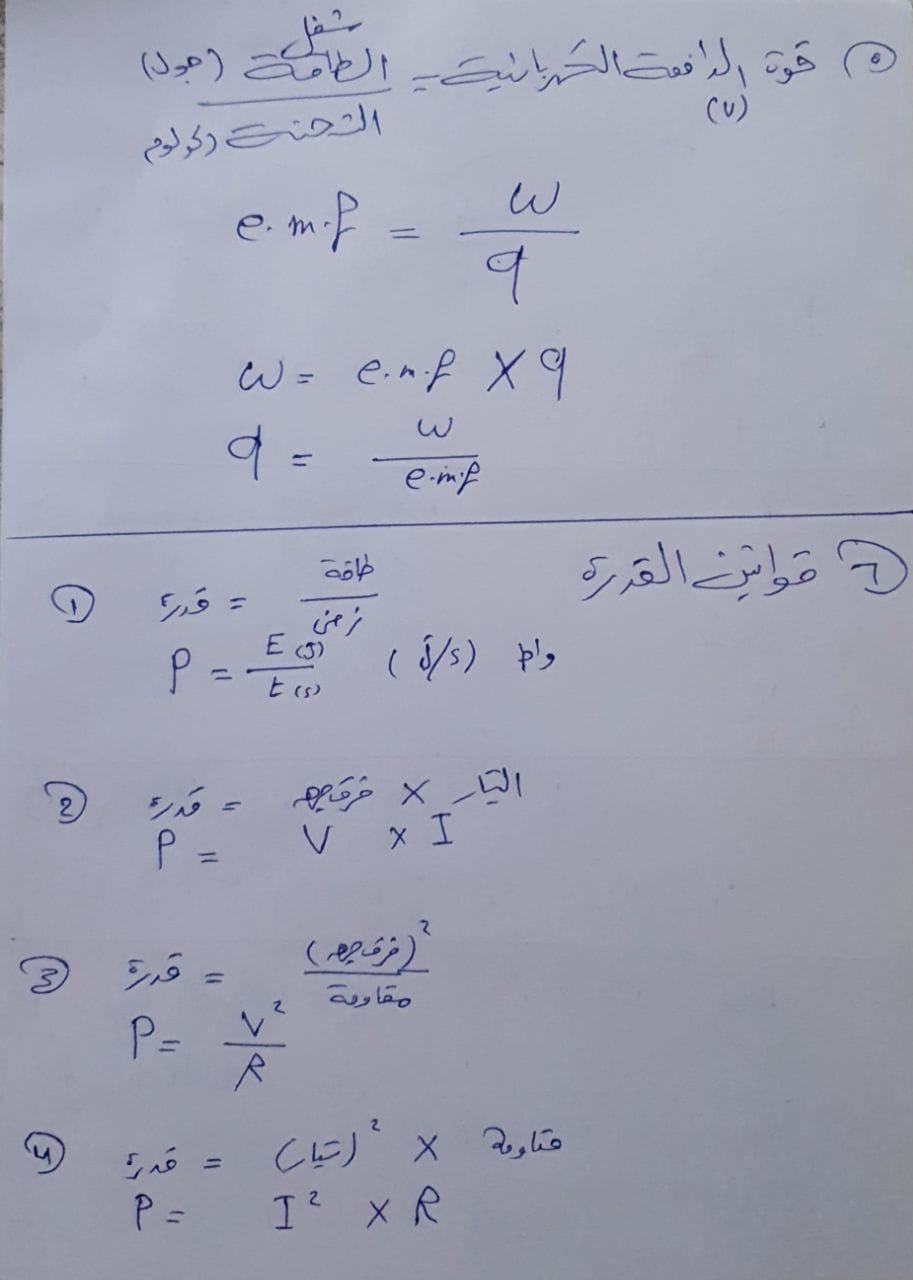 ٥ قوة الدافعة الكهربائية = شغل الطاقة (جول) / الشحنة (كولوم)
(V)
e.m.f = w / q
w = e.m.f × q
q = w / e.m.f
٦ قوانين القدرة
① قدرة = طاقة / زمن
P = E (J) / t (s) (J/s) واط
② قدرة = فرق جهد × التيار
P = V × I
③ قدرة = (فرق جهد)² / مقاومة
P = V² / R
④ قدرة = (تيار)² × مقاومة
P = I² × R